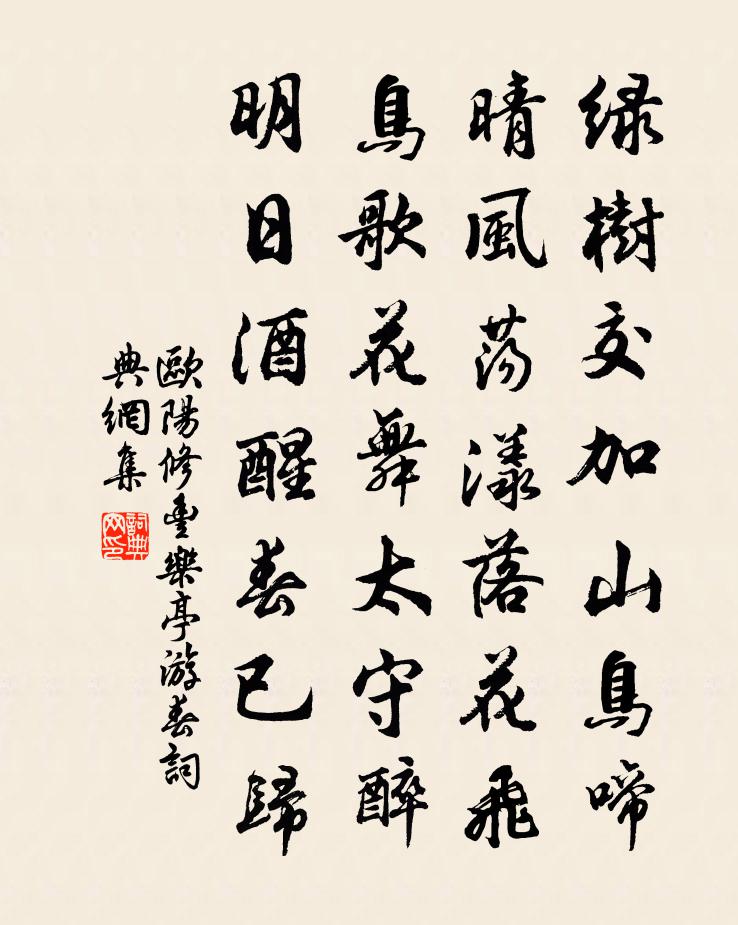 綠樹交加山鳥啼
晴風蕩漾落花飛
鳥歌花舞太守醉
明日酒醒春已歸
歐陽修豐樂亭游春詞
典網集
詞典網印